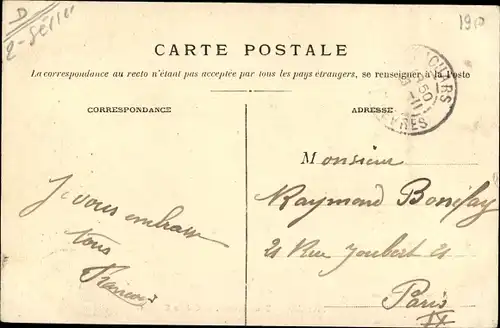 D
2-Sévres
1910
CARTE POSTALE
La correspondance au recto n'étant pas acceptée par tous les pays étrangers, se renseigner à la Poste
CORRESPONDANCE
ADRESSE
Monsieur
Je vous embrasse
tous
Raymond Bonifay
21 Rue Joubert 21
Paris
IX